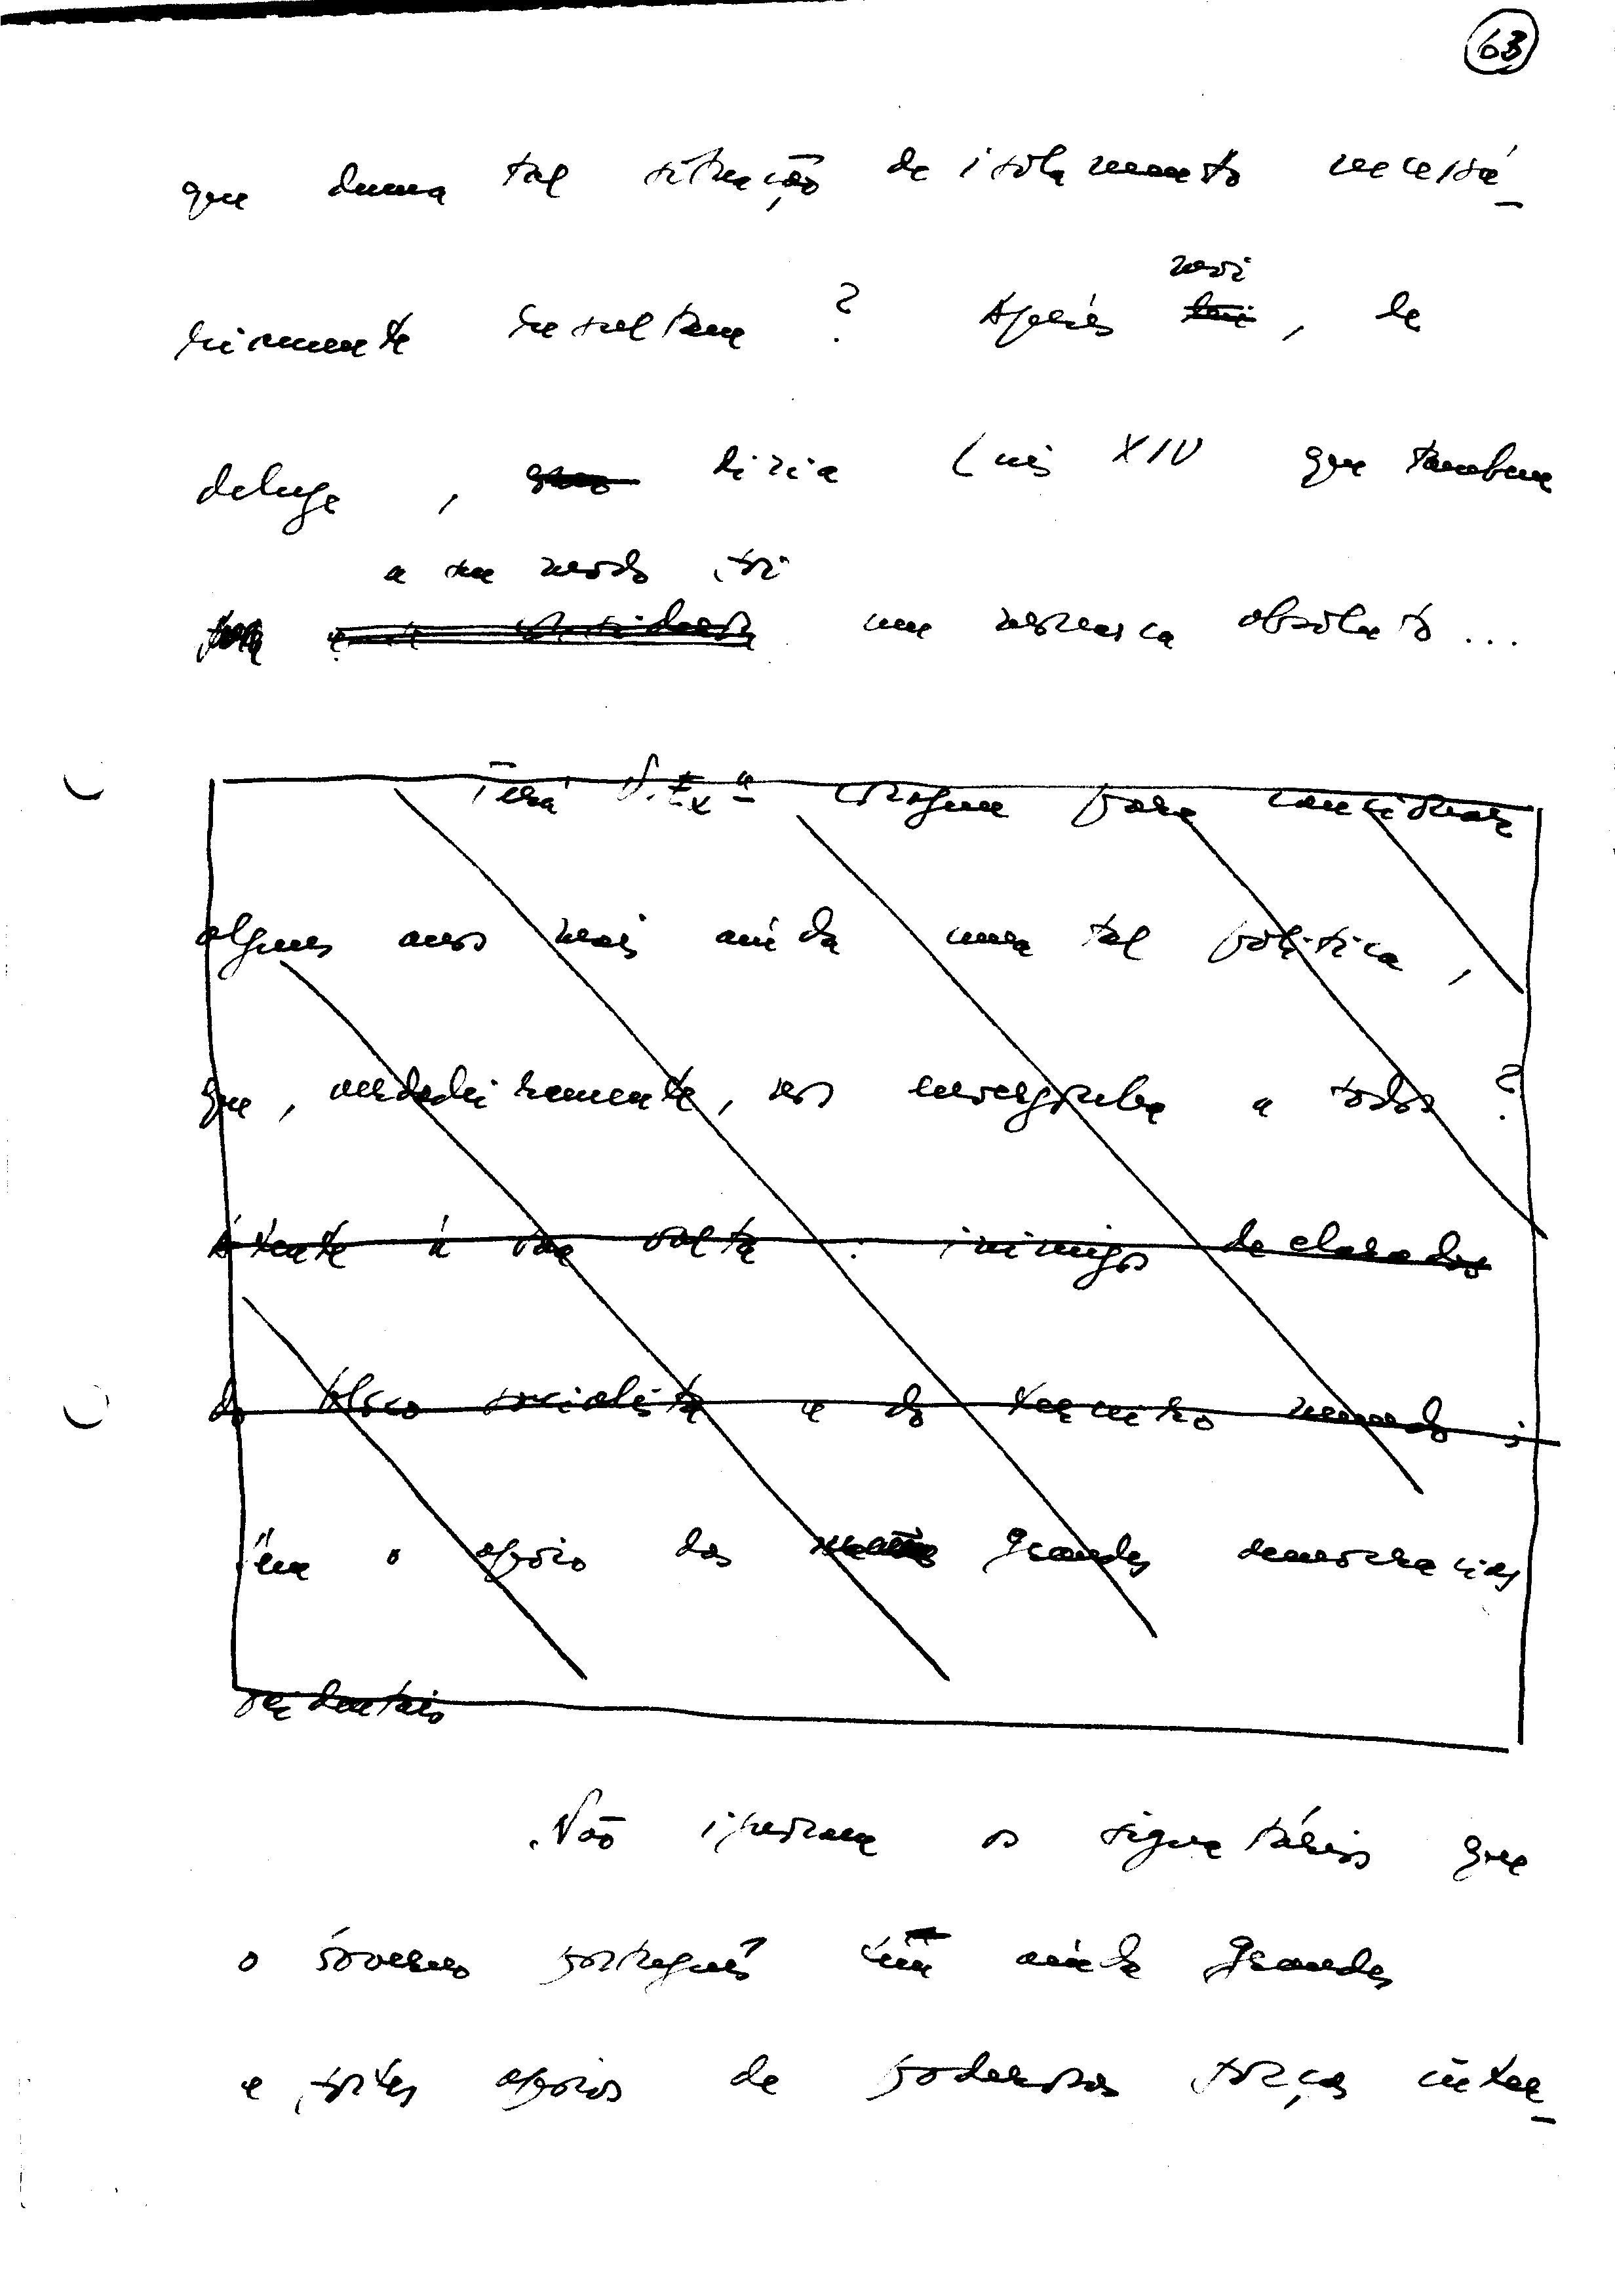 63
que duma tal situação de isolamento necessá-
riamente resultam? Après moi, le
deluge, dizia Luís XIV que também
a seu modo foi um monarca absoluto...
Terá V. Exª coragem para continuar
alguns anos mais ainda uma tal política,
que, verdadeiramente, nos envergonha a todos?
Atente à sua volta: inimigos declarados
do bloco socialista e do terceiro mundo;
tem o apoio das grandes democracias
ocidentais
Não ignoram os signatários que
o Governo português tem ainda grandes
e fortes apoios de poderosas forças inter-